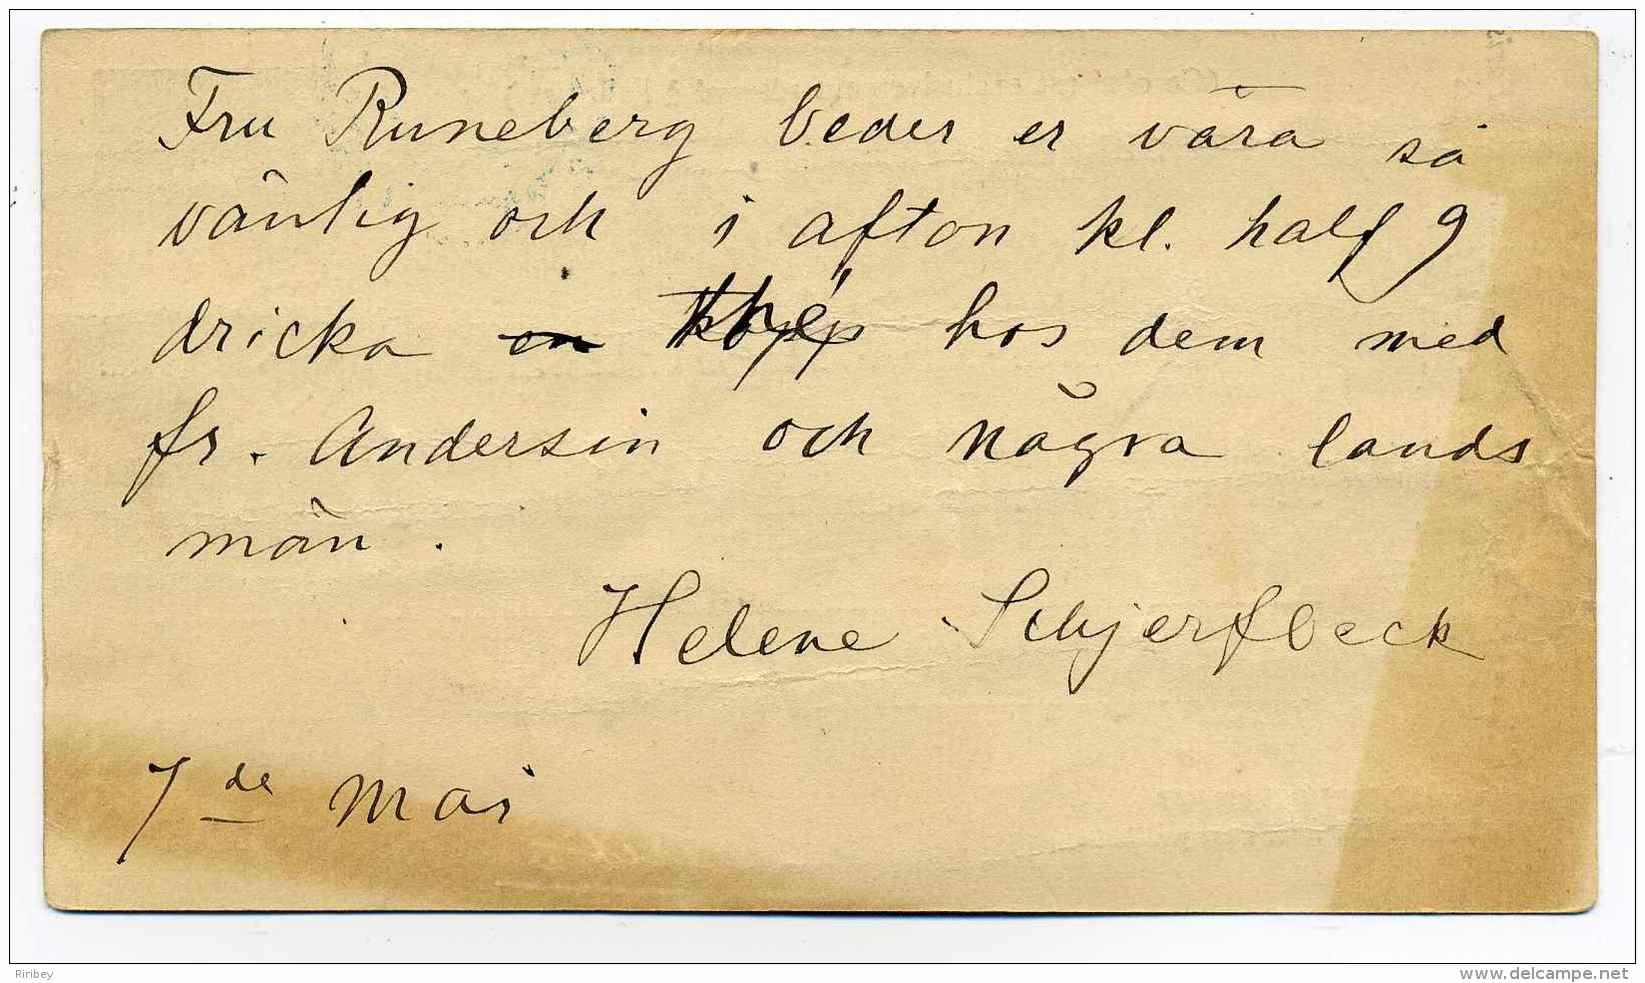 Fru Runeberg beder er vara så
vänlig och i afton kl. half 9
dricka en thé hos dem med
fr. Andersin och några lands
män.
Helene Schjerfbeck
7 de Mai
Riribey
www.delcampe.net